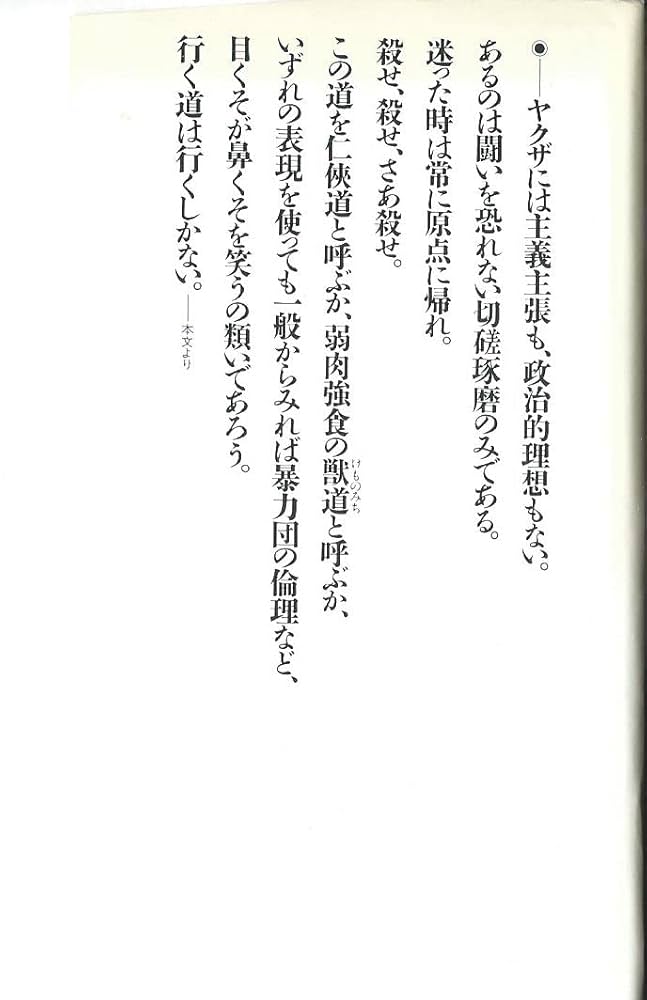 ◉——ヤクザには主義主張も、政治的理想もない。
あるのは闘いを恐れない切磋琢磨のみである。
迷った時は常に原点に帰れ。
殺せ、殺せ、さあ殺せ。
この道を仁俠道と呼ぶか、弱肉強食の獣道と呼ぶか、
けものみち
いずれの表現を使っても一般からみれば暴力団の倫理など、
目くそが鼻くそを笑うの類いであろう。
行く道は行くしかない。——本文より